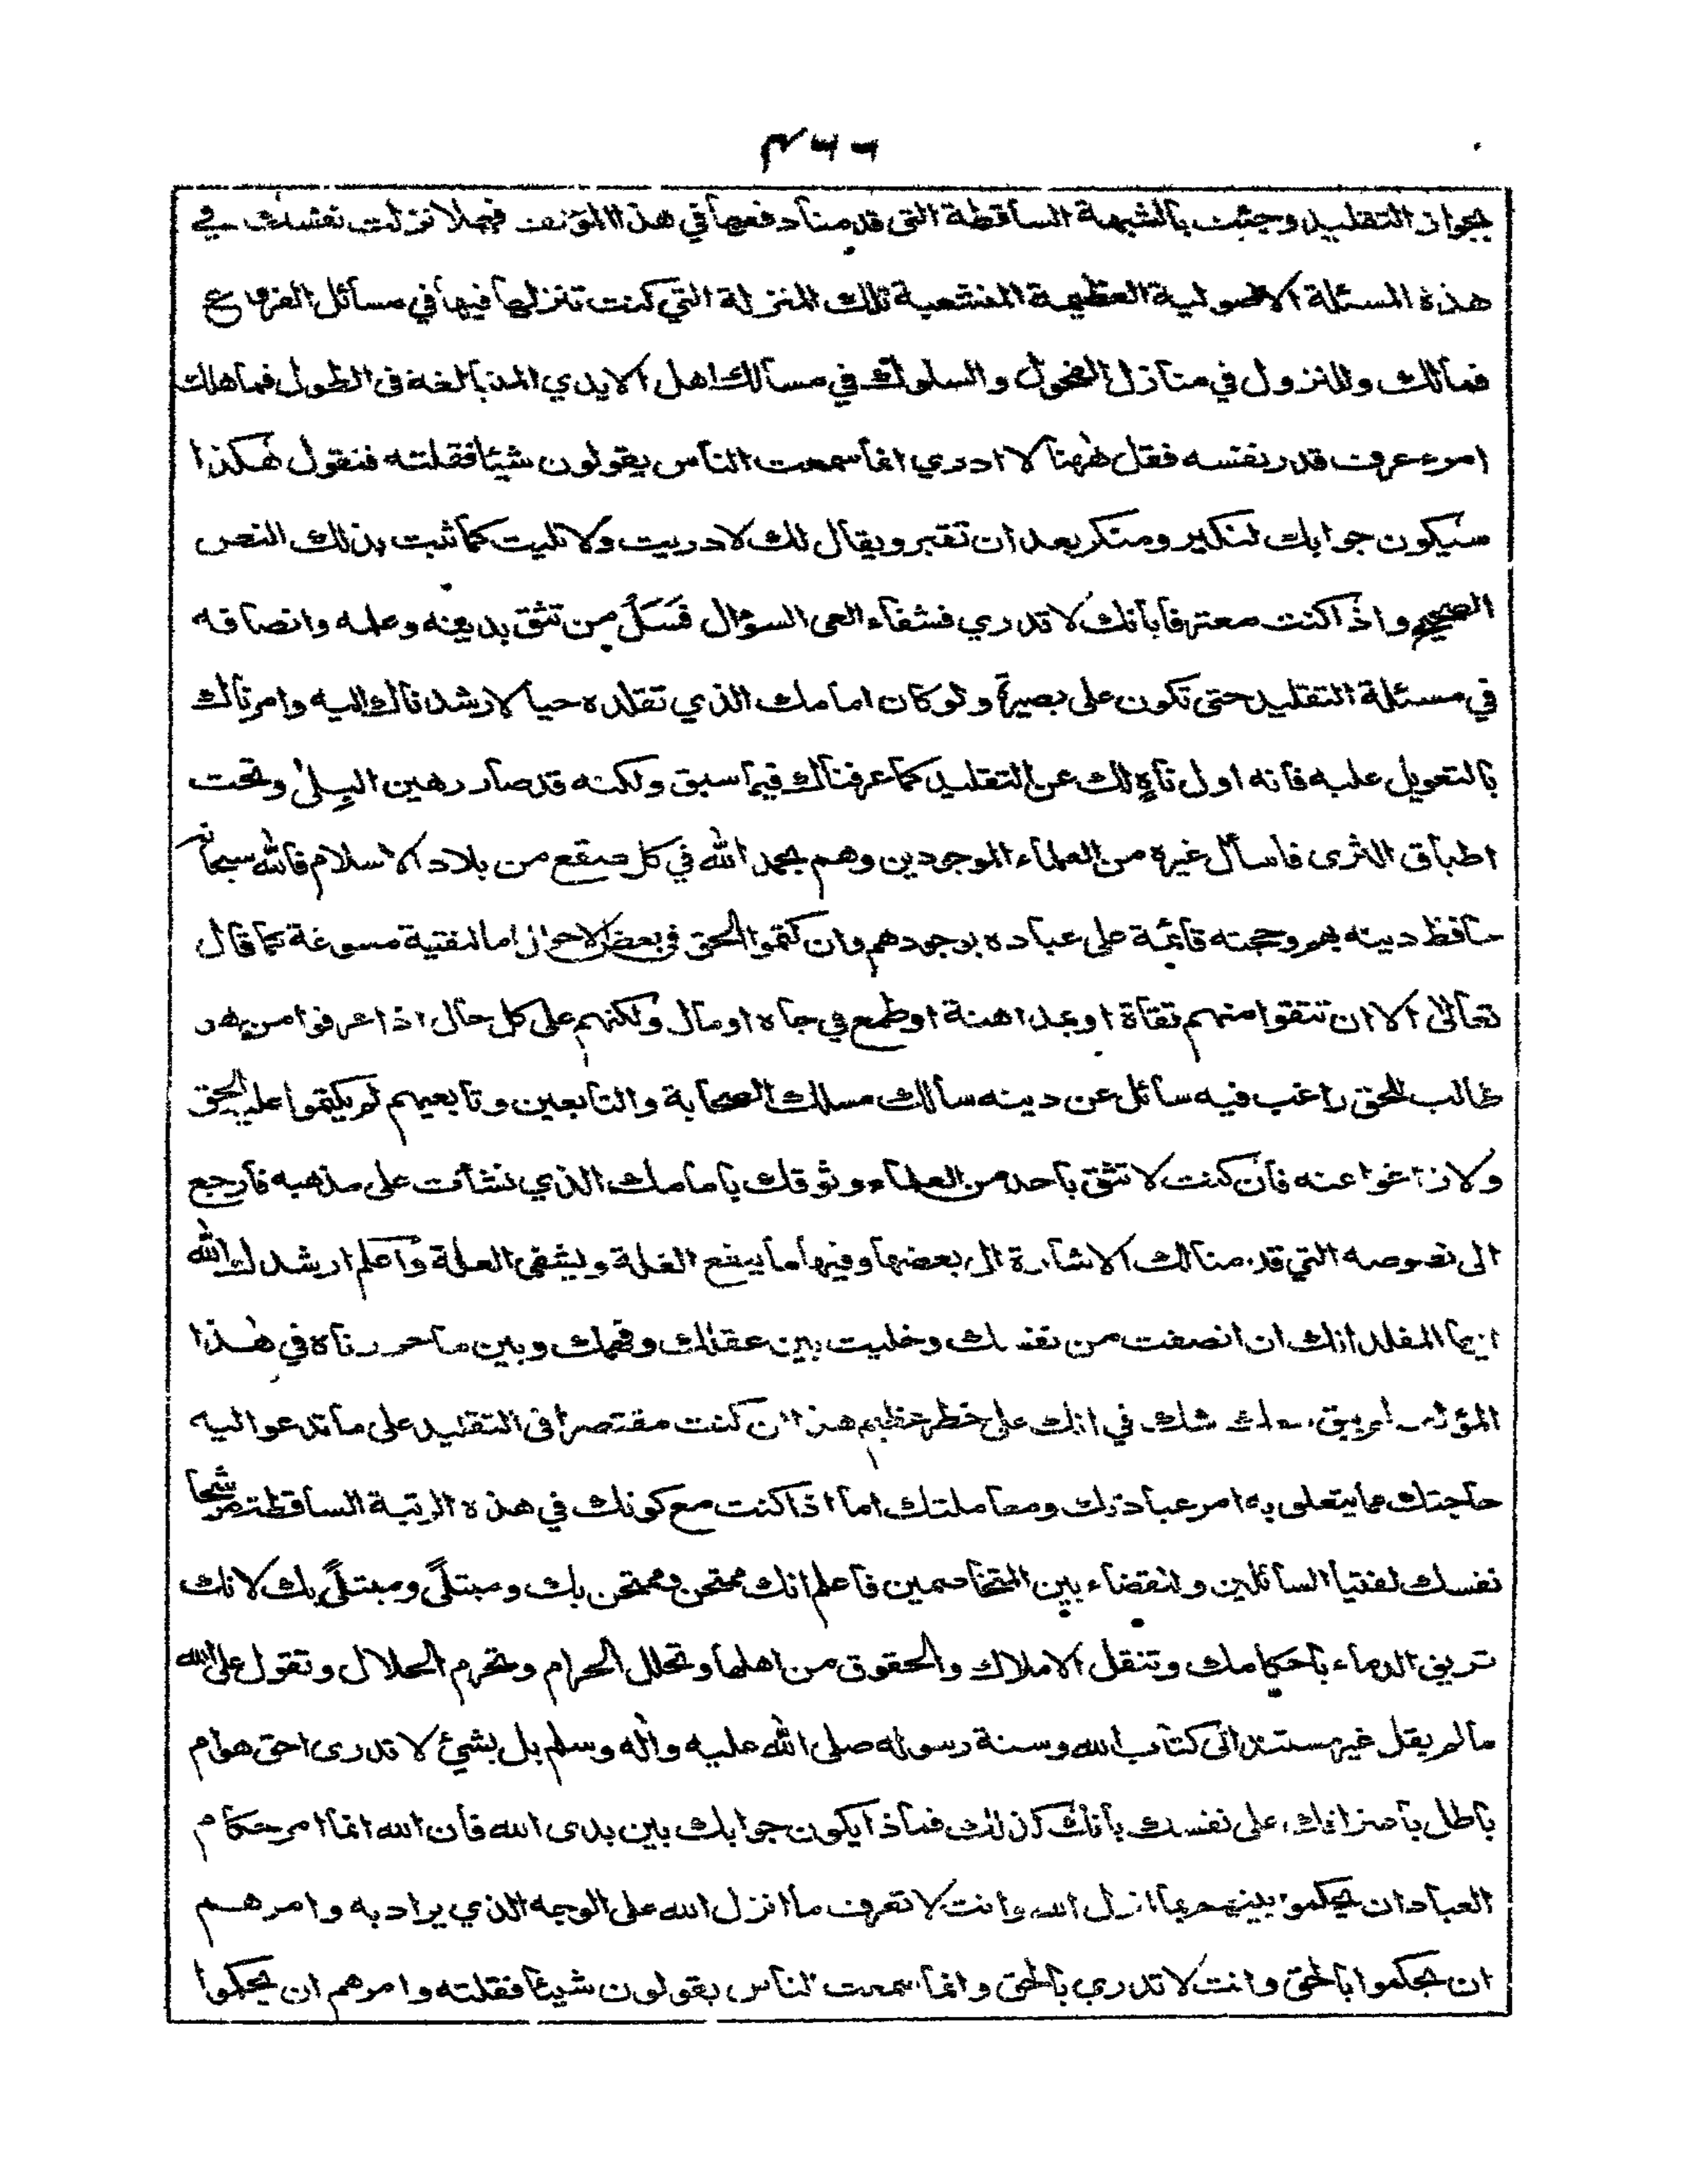 بجواز التقليد وجئت بالشبهة الساقطة التي قدمنا دفعها في هذا المؤلف فهلا نزلت نفسك في
هذة المسئلة الاصولية العظيمة المتشعبة تلك المنزلة التي كنت تنزلها فيها في مسائل الفروع
فمالك وللنزول في منازل الفحول والسلوك في مسالك اهل الايدي المتبالغة فى الطول فما هلك
امرء عرف قدر نفسه فقل ههنا لا ادري انما سمعت الناس يقولون شيئا فقلته فنقول هكذا
سيكون جوابك لنكير ومنكر بعد ان تقبر ويقال لك لا دريت ولا تليت كما ثبت بذلك النص
الصحيح واذا كنت معترفا بانك لا تدري فشفاء العى السؤال فسل من تثق بدينه وعلمه وانصافه
في مسئلة التقليد حتى تكون على بصيرة ولو كان امامك الذي تقلده حيا لارشدناك اليه وامرناك
بالتعويل عليه فانه اول ناه لك عن التقليد كما عرفناك فيما سبق ولكنه قد صار رهين البلى وتحت
اطباق الثرى فاسأل غيره من العلماء الموجودين وهم بحمد الله في كل صقع من بلاد الاسلام فالله سبحانه
حافظ دينه بهم وحجته قائمة على عباده بوجودهم وان كتموا الحق في بعض الاحوال اما لتقية مسوغة كما قال
تعالى الا ان تتقوا منهم تقاة او لمداهنة او طمع في جاه او مال ولكنهم على كل حال اذا عرفوا من هو
طالب للحق راغب فيه سائل عن دينه سالك مسلك الصحابة والتابعين وتابعيهم لم يكتموا عليه الحق
ولا زاغوا عنه فان كنت لا تثق باحد من العلماء وثوقك بامامك الذي نشأت على مذهبه فارجع
الى نصوصه التي قدمنا لك الاشارة الى بعضها وفيها ما ينقع الغلة ويشفى العلة واعلم ارشدك الله
ايها المقلد انك ان انصفت من نفسك وخليت بين عقلك وفهمك وبين ما حررناه في هذا
المؤلف لم يبق معك شك في انك على خطر عظيم هذا ان كنت مقتصرا فى التقليد على ما تدعو اليه
حاجتك مما يتعلق به امر عبادتك ومعاملتك اما اذا كنت مع كونك في هذه الرتبة الساقطة مرشحا
نفسك لفتيا السائلين ولنقضاء بين المتخاصمين فاعلم انك ممتحن وممتحن بك ومبتلًى ومبتلًى بك لانك
تريق الدماء باحكامك وتنقل الاملاك والحقوق من اهلها وتحلل الحرام وتحرم الحلال وتقول على الله
مالم يقل غير مستند الى كتاب الله وسنة رسوله صلى الله عليه واله وسلم بل بشئ لا تدرى احق هو ام
باطل باعترافك على نفسك بانك كذلك فماذا يكون جوابك بين يدى الله فان الله انما امر حكام
العباد ان يحكموا بينهم بما انزل الله وانت لا تعرف ما انزل الله على الوجه الذي يراد به وامرهم
ان يحكموا بالحق وانت لا تدري بالحق وانما سمعت الناس يقولون شيئا فقلته وامرهم ان يحكموا